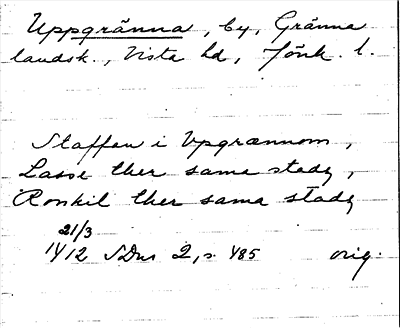 Uppgränna, by, Gränna
landsk., Vista hd, Jönk. l.
Staffen i Vpgrænnom,
Lasse ther same stadz,
Ronkil ther sama stadz
21/3
1412 SDns 2, s. 485 orig.